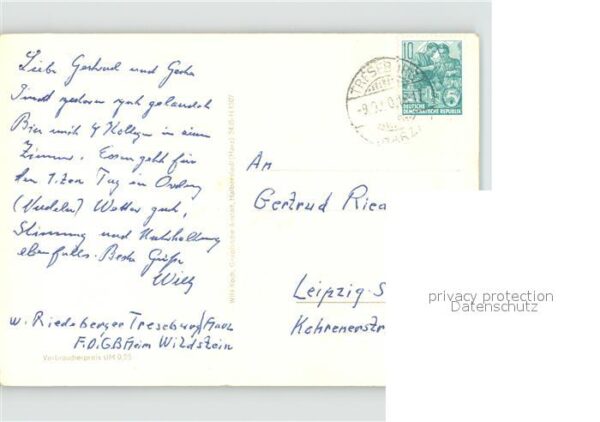 Liebe Gertrud und Gerda
Sind gestern gut gelandet
Bin mit 4 Kollegen in einem
Zimmer. Essen geht für
den 1.ten Tag in Ordnung
(Nudeln) Wetter gut,
Stimmung und Unterhaltung
ebenfalls. Beste Grüße
Willy
w. Riedeberger Treseburg/Harz
F.D.G.B Heim Wildstein
Verbraucherpreis DM 0,05
Willi Koch, Halberstadt (Harz)
TRESEBURG
(HARZ)
10
DEUTSCHE
DEMOKRATISCHE REPUBLIK
An
Gertrud
Leipzig S
Kohrenerstr
privacy protection
Datenschutz